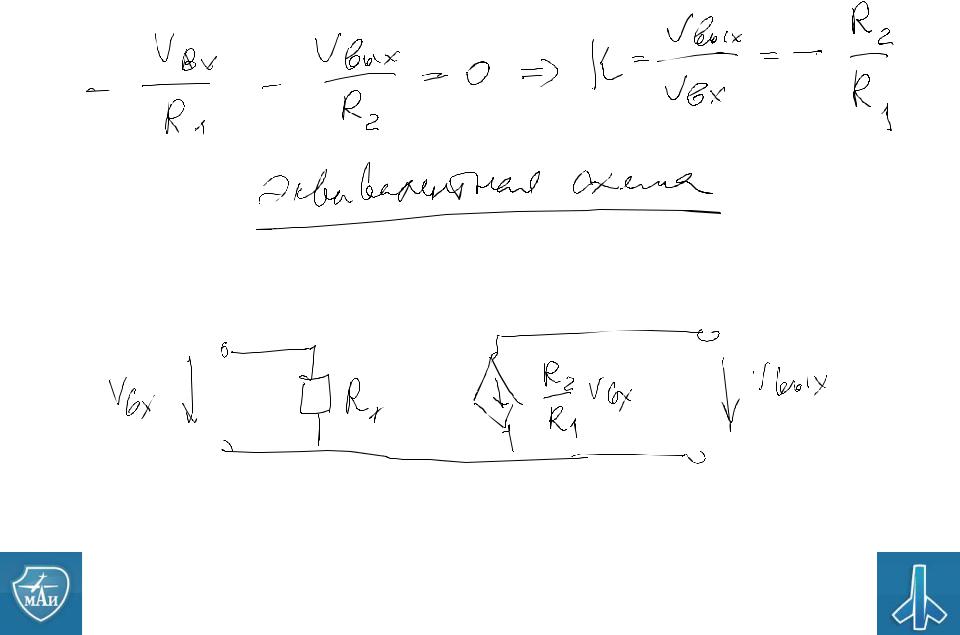 - Vвх/R1 - Vвых/R2 = 0 => K = Vвых/Vвх = - R2/R1
Эквивалентная схема
Vвх R1 R2/R1 Vвх Vвых
МАИ